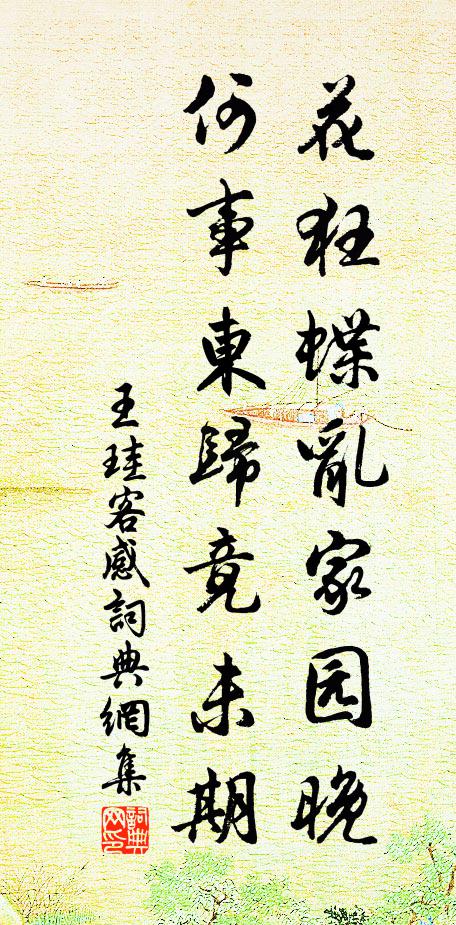 花狂蝶亂家园晚
何事東歸竟未期
王珪客感詞典網集
詞典
网印